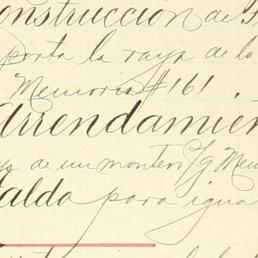 onstrucción de
porta la raya de la
Memoria # 161
Arrendamien
de un montero s/g Mem
aldo para igua